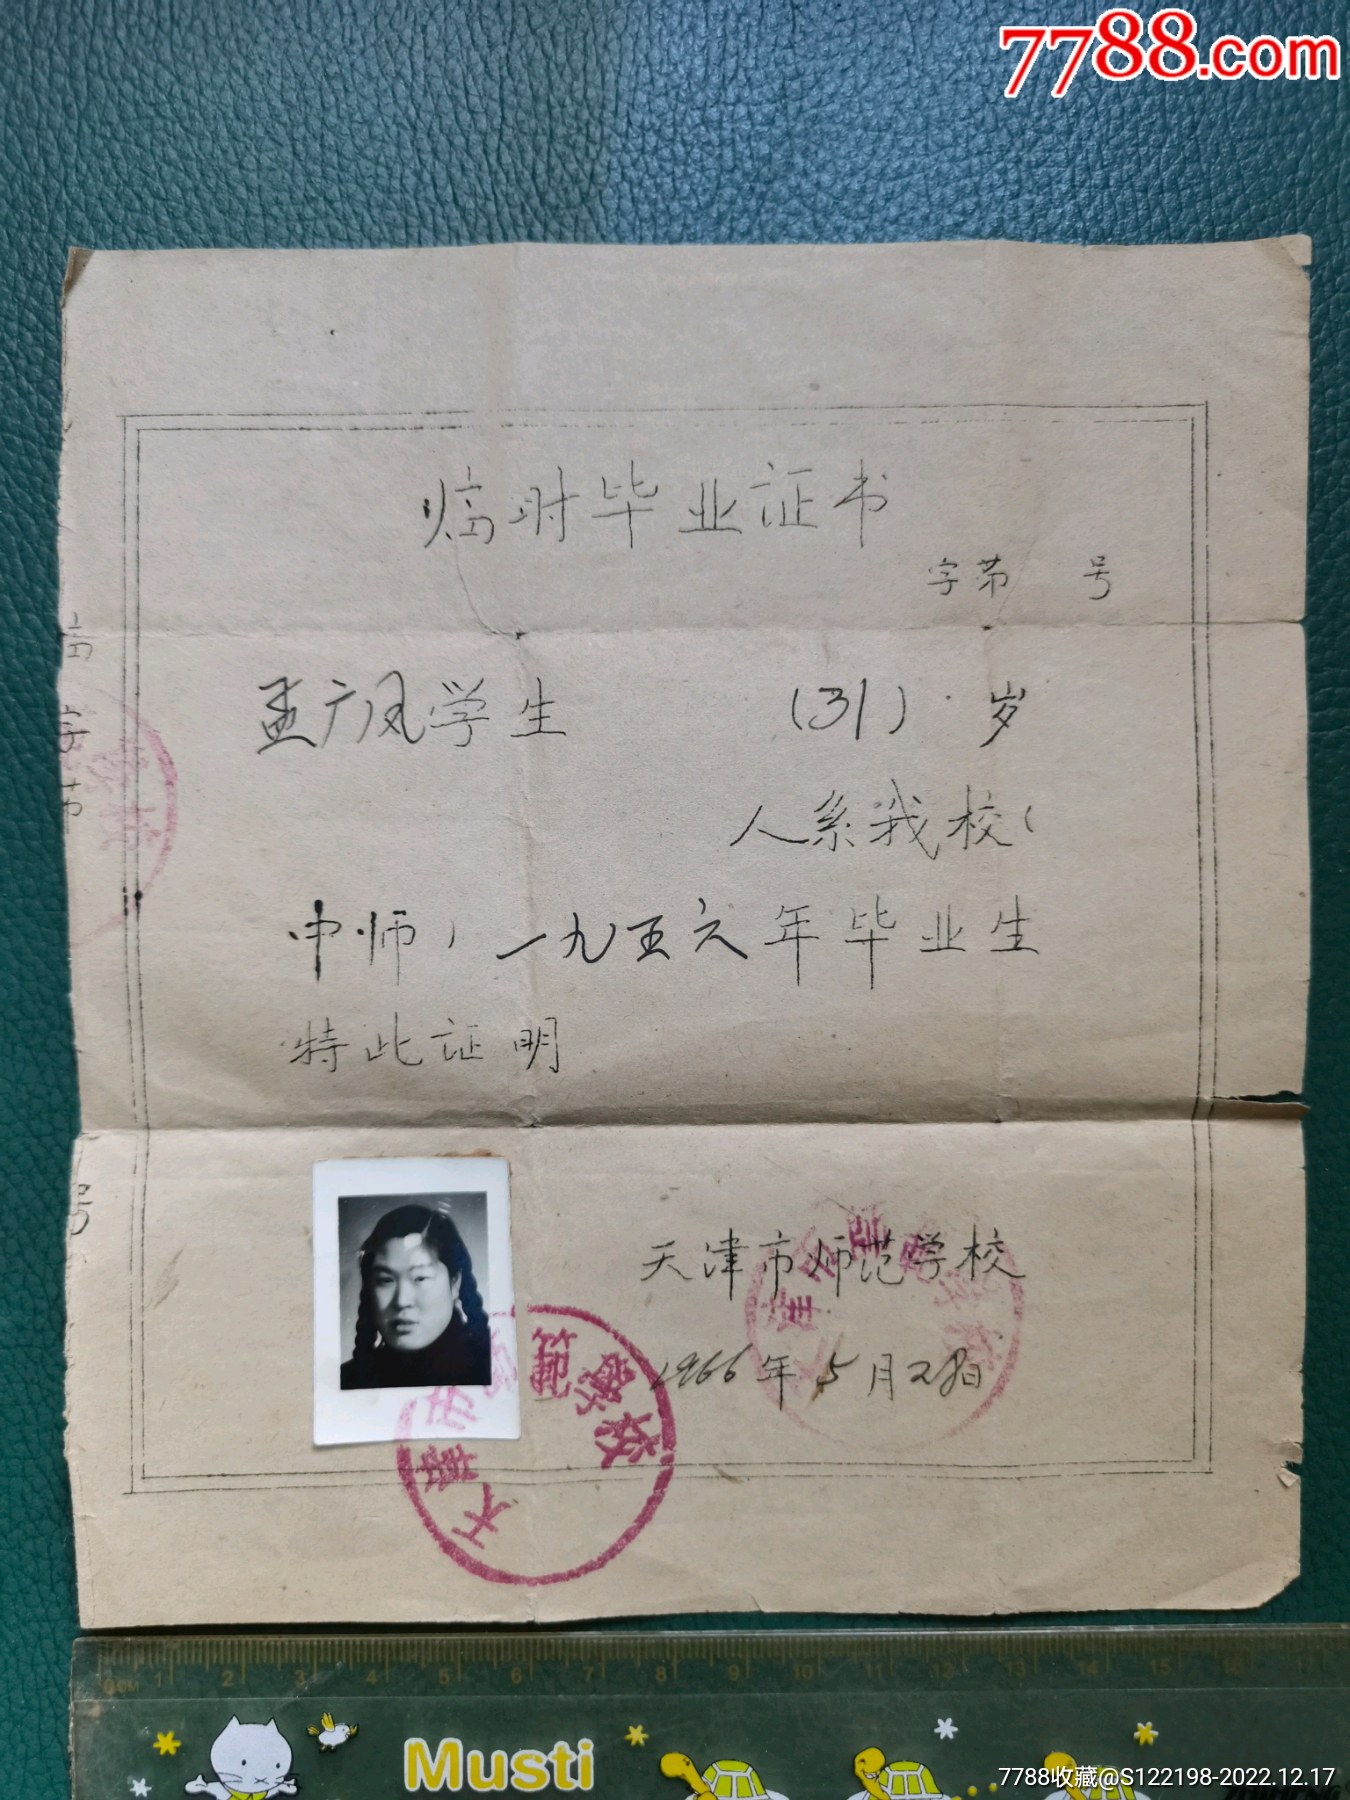 7788.com
临时毕业证书
字第 号
孟广凤学生 (31) 岁
人系我校(
中师) 一九五六年毕业生
特此证明
天津市师范学校
1966年5月28日
天津市师范学校
号
0CM 1 2 3 4 5 6 7 8 9 10 11 12 13 14 15 16 17
Musti
7788收藏@S122198-2022.12.17